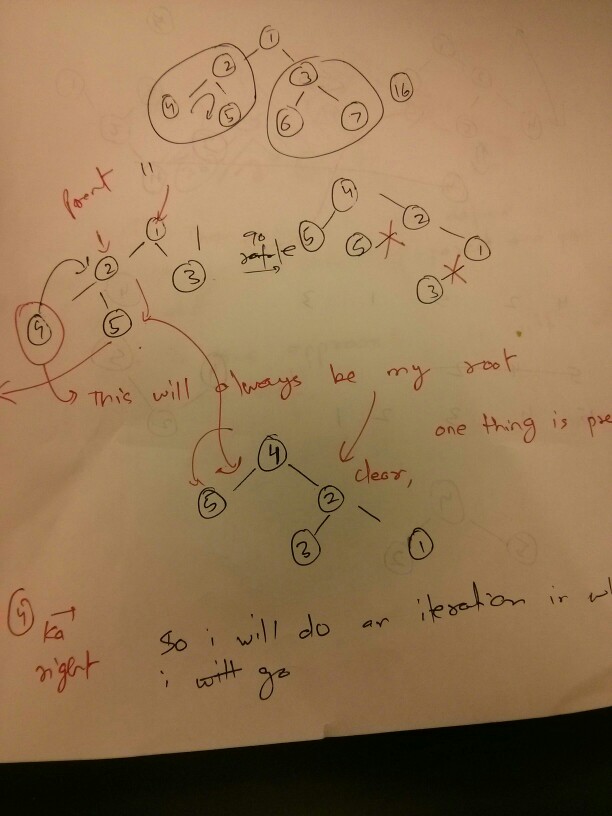 1
2 3 16
4 5 6 7
Parent "
1 4
2 3 90 rotate 5 5 2 1
4 5 3
This will always be my root
one thing is pre
4
clear,
5 2
3 1
4 Ka
right
So i will do an iteration in wh
i will go